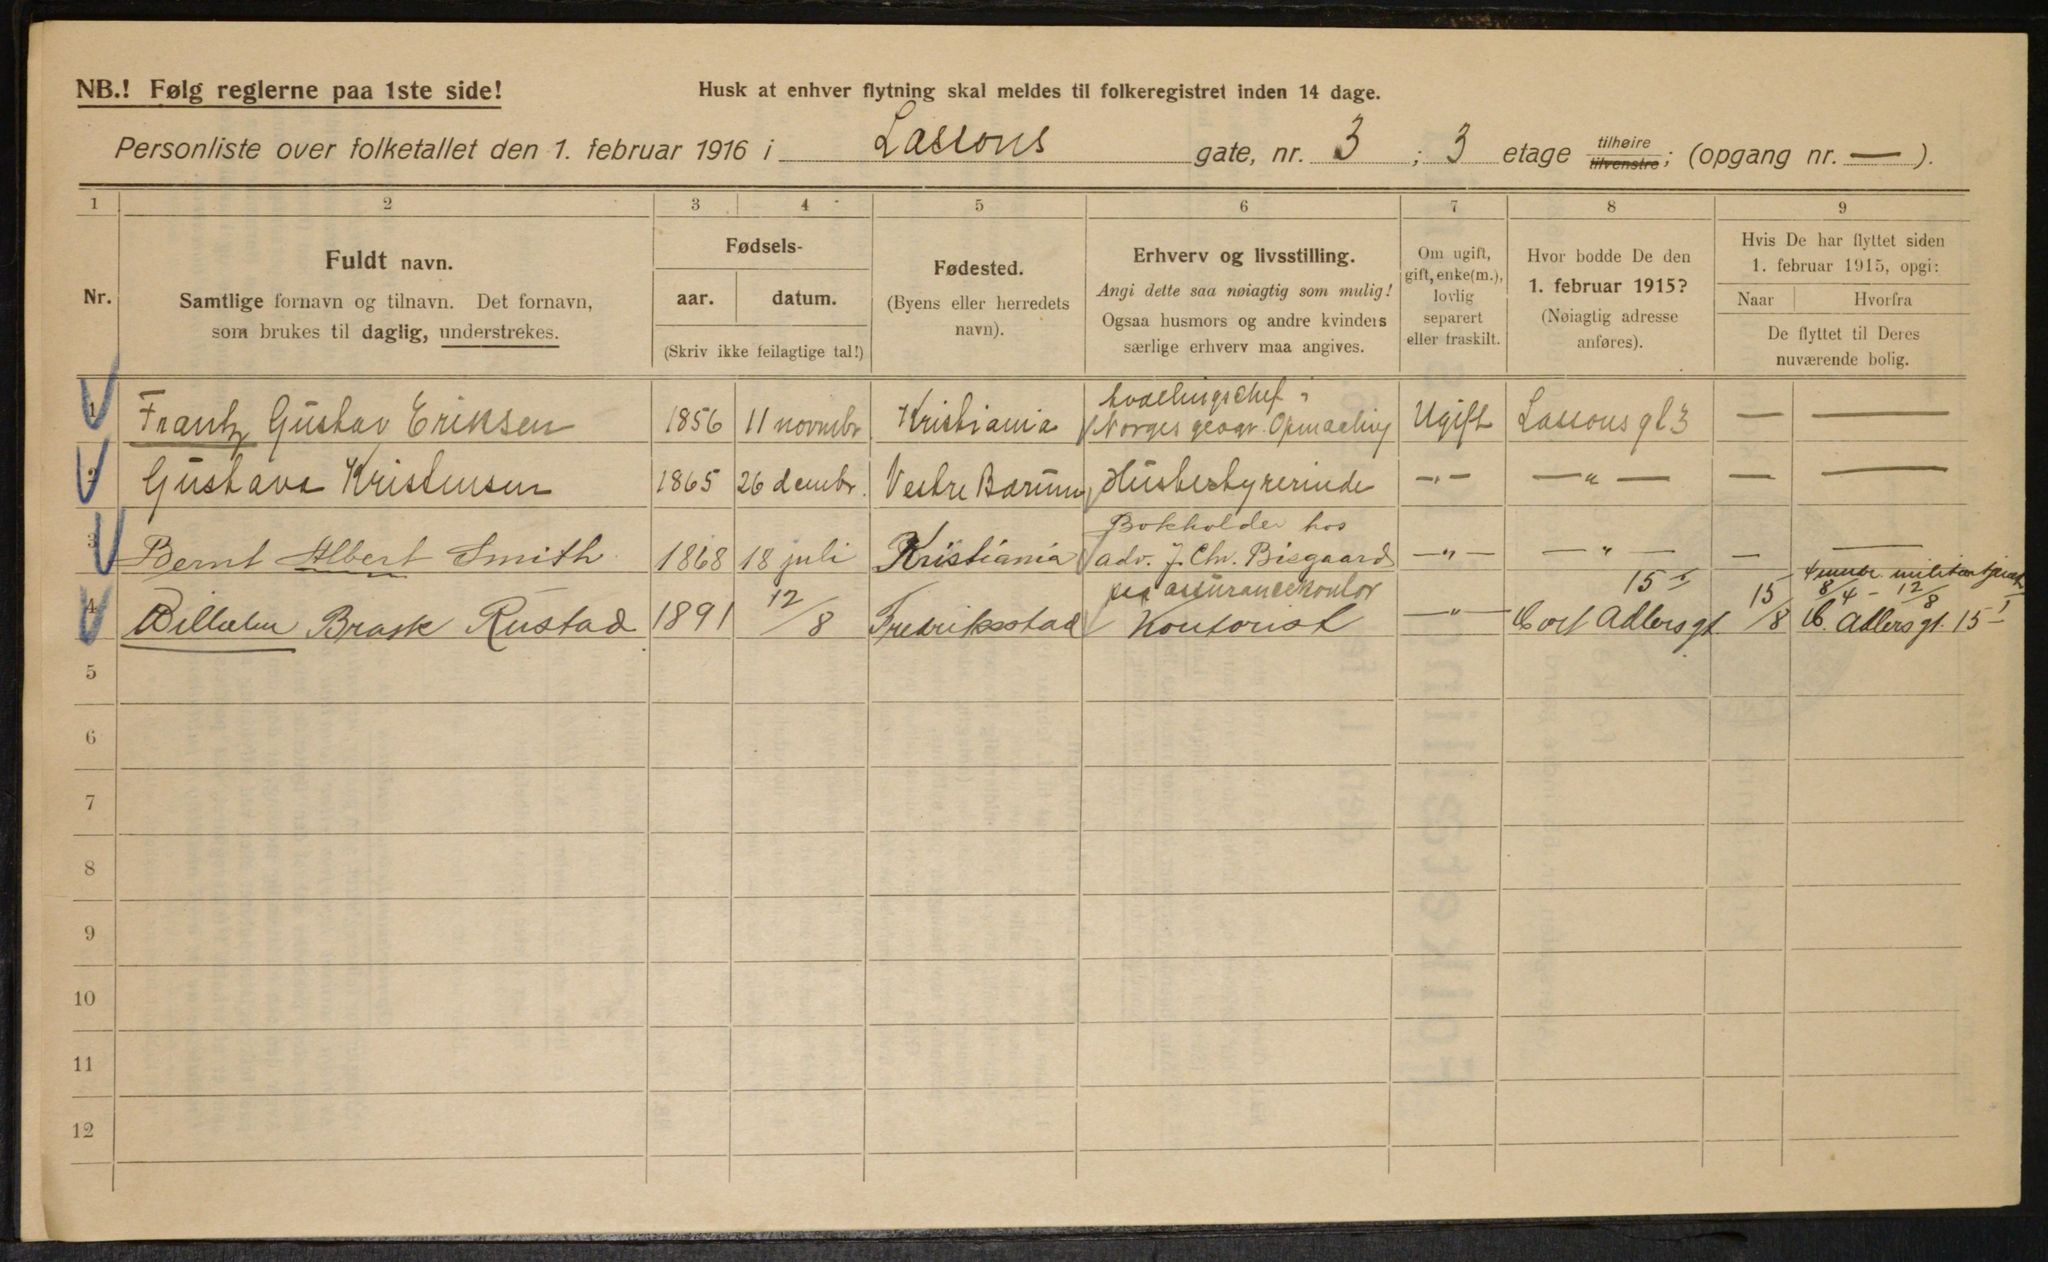 NB.! Følg reglerne paa 1ste side!
Husk at enhver flytning skal meldes til folkeregistret inden 14 dage.
Personliste over folketallet den 1. februar 1916 i Lassons gate, nr. 3 ; 3 etage tilhøire tilvenstre; (opgang nr. — ).
1 2 3 4 5 6 7 8 9
Nr.
Fuldt navn.
Samtlige fornavn og tilnavn. Det fornavn,
som brukes til daglig, understrekes.
Fødsels-
aar. datum.
(Skriv ikke feilagtige tal!)
Fødested.
(Byens eller herredets
navn).
Erhverv og livsstilling.
Angi dette saa nøiagtig som mulig!
Ogsaa husmors og andre kvinders
særlige erhverv maa angives.
Om ugift,
gift, enke(m.),
lovlig
separert
eller fraskilt.
Hvor bodde De den
1. februar 1915?
(Nøiagtig adresse
anføres).
Hvis De har flyttet siden
1. februar 1915, opgi:
Naar Hvorfra
De flyttet til Deres
nuværende bolig.
1 Frantz Gustav Eriksen 1856 11 novmbr Kristiania Avdelingschef i
Norges geogr. Opmaaling Ugift Lassons gt 3 — —
2 Gustava Kristensen 1865 26 dcmbr. Vestre Bærum Husbestyrerinde —„— —„— — —
3 Bernt Albert Smith 1868 18 juli Kristiania Bokholder hos
adv. J. Chr. Bisgaard —„— —„— — —
4 Wilhelm Brask Rustad 1891 12/8 Fredriksstad paa assurancekontor
Kontorist —„— Cort Adlersgt 15 I 15/8 militær 8/4 - 12/8
C. Adlersgt. 15 I
5
6
7
8
9
10
11
12